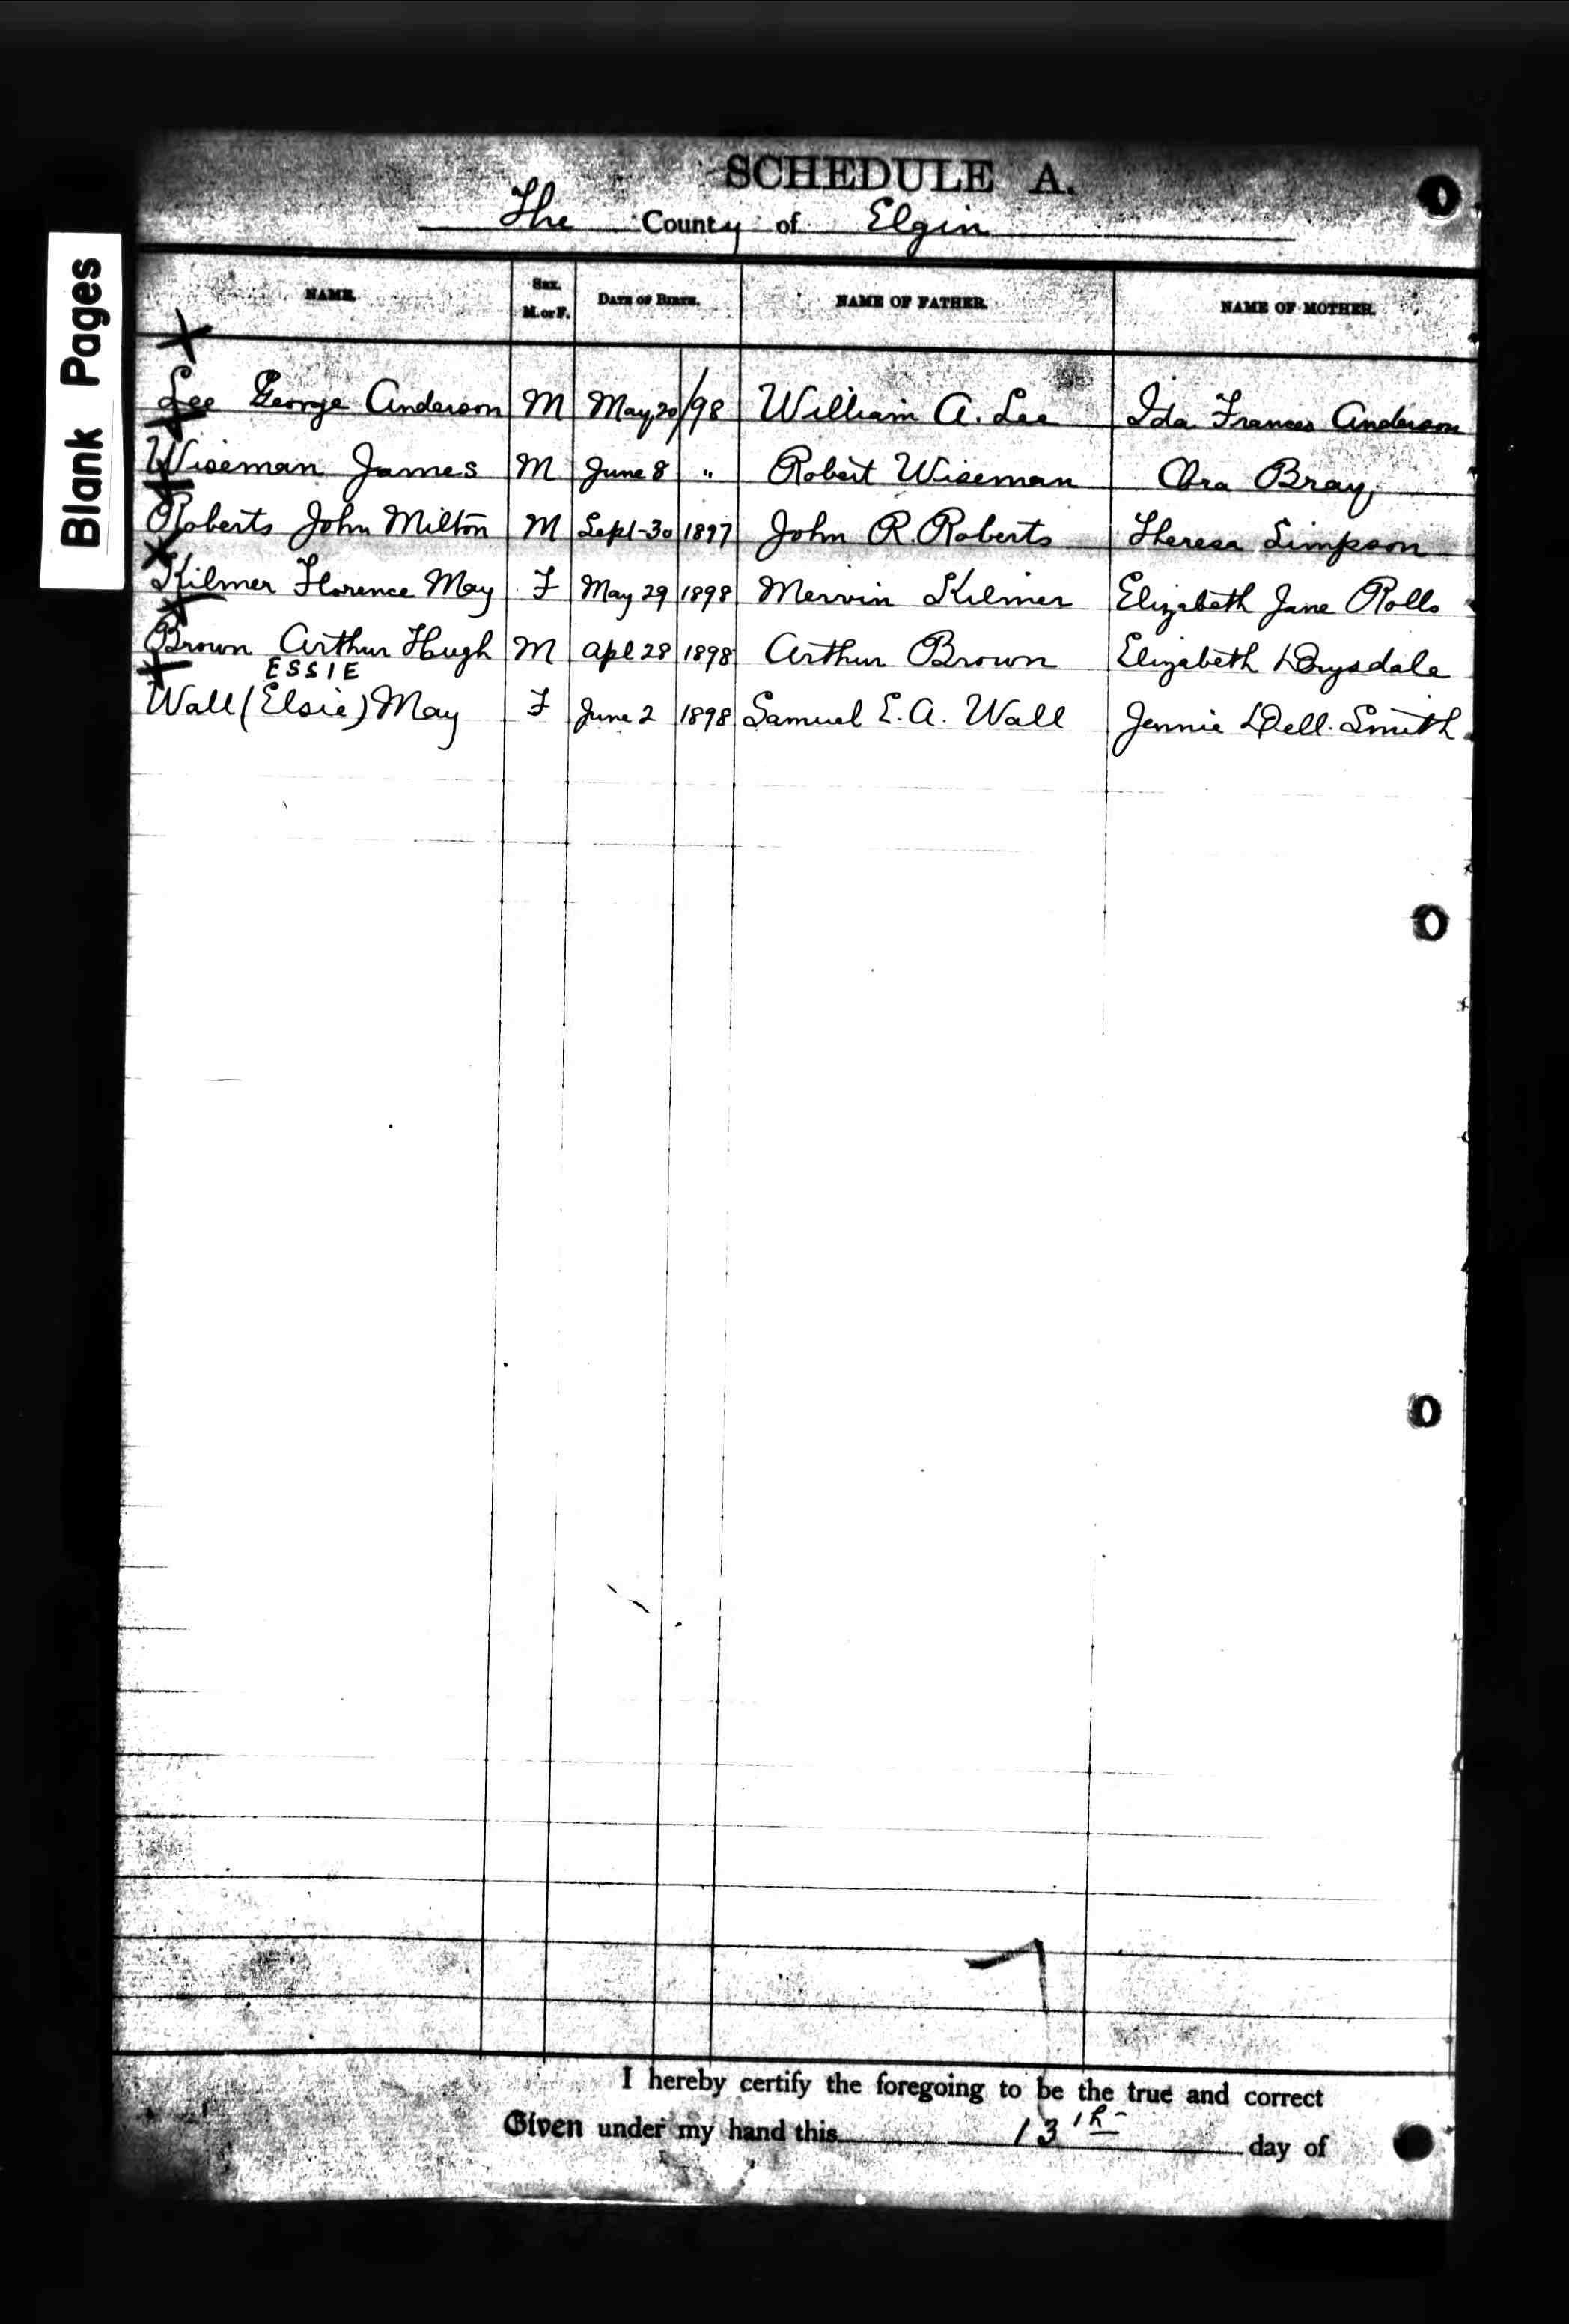 Blank Pages
SCHEDULE A.
The County of Elgin
NAME. SEX. M. or F. DATE OF BIRTH. NAME OF FATHER. NAME OF MOTHER.
Lee George Anderson M May 20/98 William A. Lee Ida Frances Anderson
Wiseman James M June 8 " Robert Wiseman Bray
Roberts John Milton M Sept-30 1897 John R. Roberts Theresa Simpson
Kilmer Florence May F May 29 1898 Mervin Kilmer Elizabeth Jane Rolls
Brown Arthur Hugh M Apl 28 1898 Arthur Brown Elizabeth Drysdale
ESSIE
Wall (Elsie) May F June 2 1898 Samuel E. A. Wall Jennie Dell. Smith
I hereby certify the foregoing to be the true and correct
Given under my hand this 13th day of